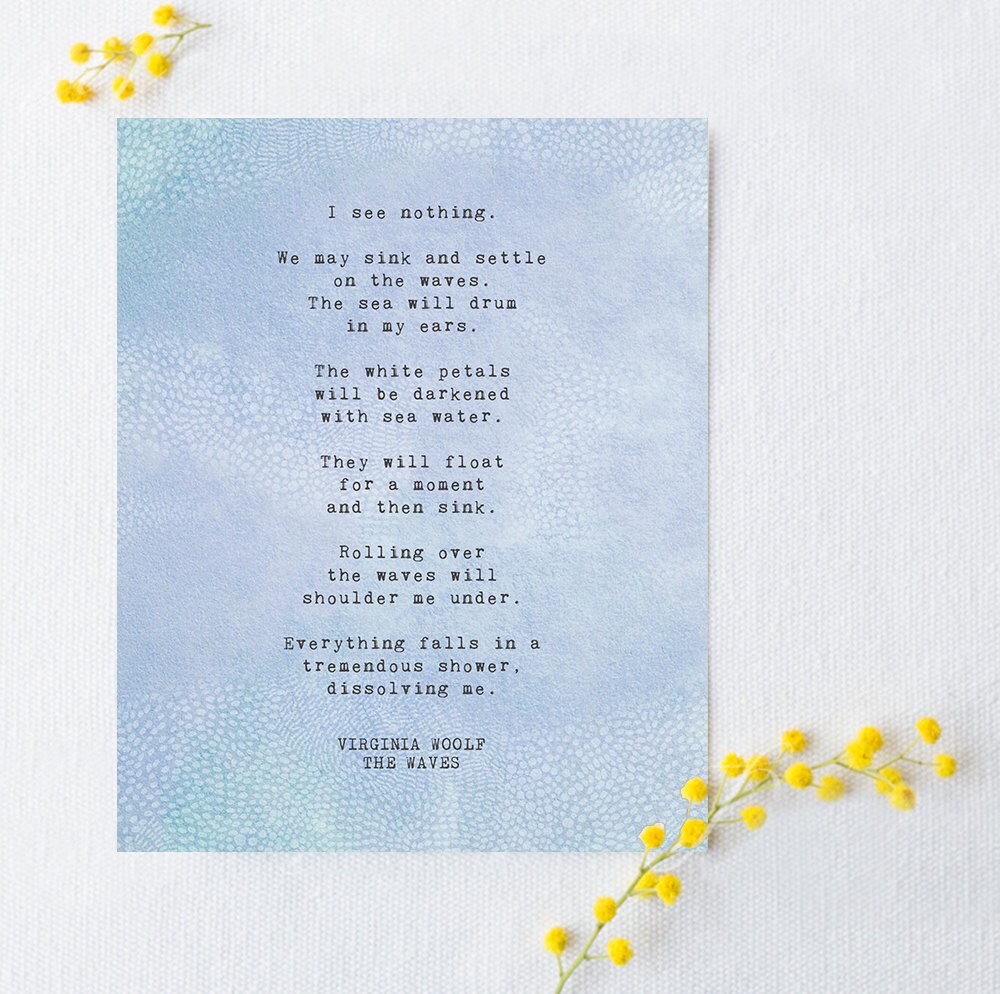 I see nothing.
We may sink and settle
on the waves.
The sea will drum
in my ears.
The white petals
will be darkened
with sea water.
They will float
for a moment
and then sink.
Rolling over
the waves will
shoulder me under.
Everything falls in a
tremendous shower,
dissolving me.
VIRGINIA WOOLF
THE WAVES